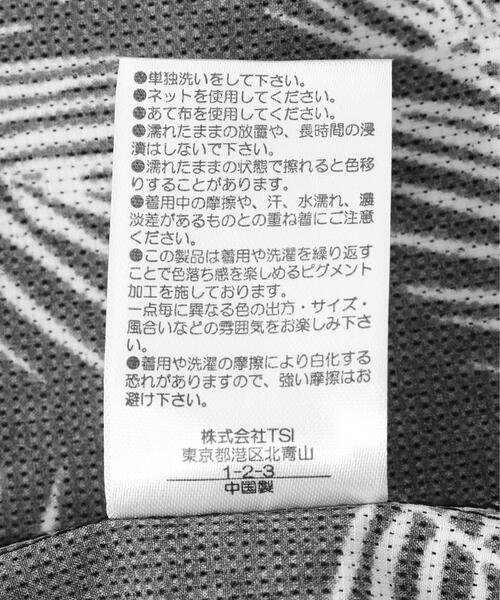 ●単独洗いをして下さい。
●ネットを使用してください。
●あて布を使用してください。
●濡れたままの放置や、長時間の浸
漬はしないで下さい。
●濡れたままの状態で擦れると色移
りすることがあります。
●着用中の摩擦や、汗、水濡れ、濃
淡差があるものとの重ね着にご注意
ください。
●この製品は着用や洗濯を繰り返す
ことで色落ち感を楽しめるピグメント
加工を施しております。
一点毎に異なる色の出方・サイズ・
風合いなどの雰囲気をお楽しみ下さ
い。
●着用や洗濯の摩擦により白化する
恐れがありますので、強い摩擦はお
避け下さい。
株式会社TSI
東京都港区北青山
1-2-3
中国製